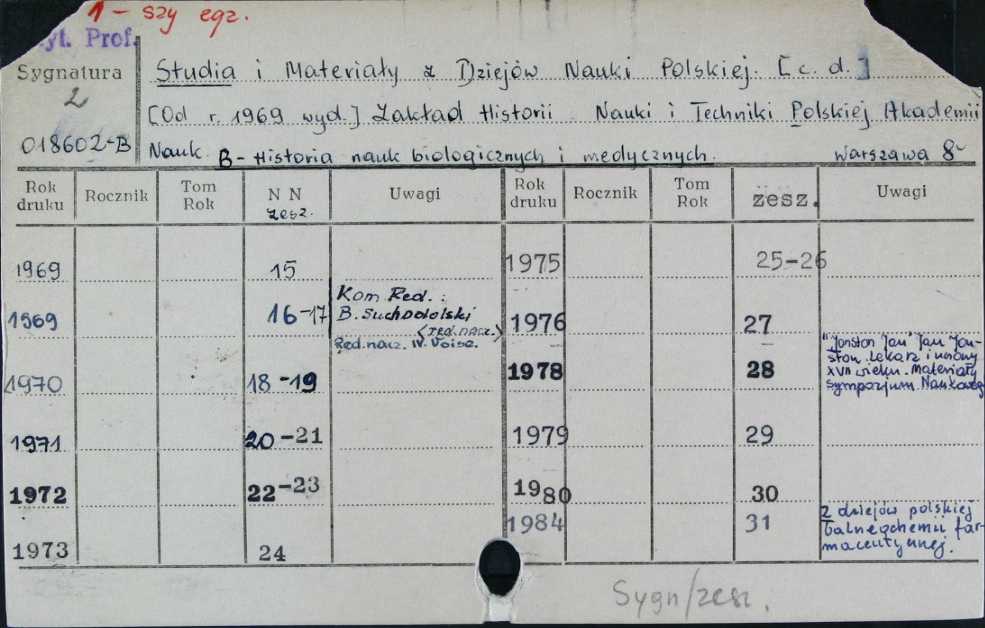 1 - szy egz.
yt. Prof.
Sygnatura
2
018602-B
Studia i Materiały z Dziejów Nauki Polskiej. [c. d.]
[Od r. 1969 wyd.] Zakład Historii Nauki i Techniki Polskiej Akademii
Nauk. B - Historia nauk biologicznych i medycznych. Warszawa 8°
Rok druku Rocznik Tom Rok N N zesz. Uwagi Rok druku Rocznik Tom Rok zesz. Uwagi
1969 15 1975 25-26
1969 16-17 Kom Red.:
B. Suchodolski
<red. nacz.>
Red. nacz. W. Voise.
1976 27
1970 18-19 1978 28 "Jonston Jan" Jan Jon-
ston lekarz i uczony
XVII wieku. Materiały
Sympozjum Naukoweg
1971 20-21 1979 29
1972 22-23 1980 30
1973 24 1984 31 Z dziejów polskiej
balneochemii far-
maceutycznej.
Sygn/zesz.